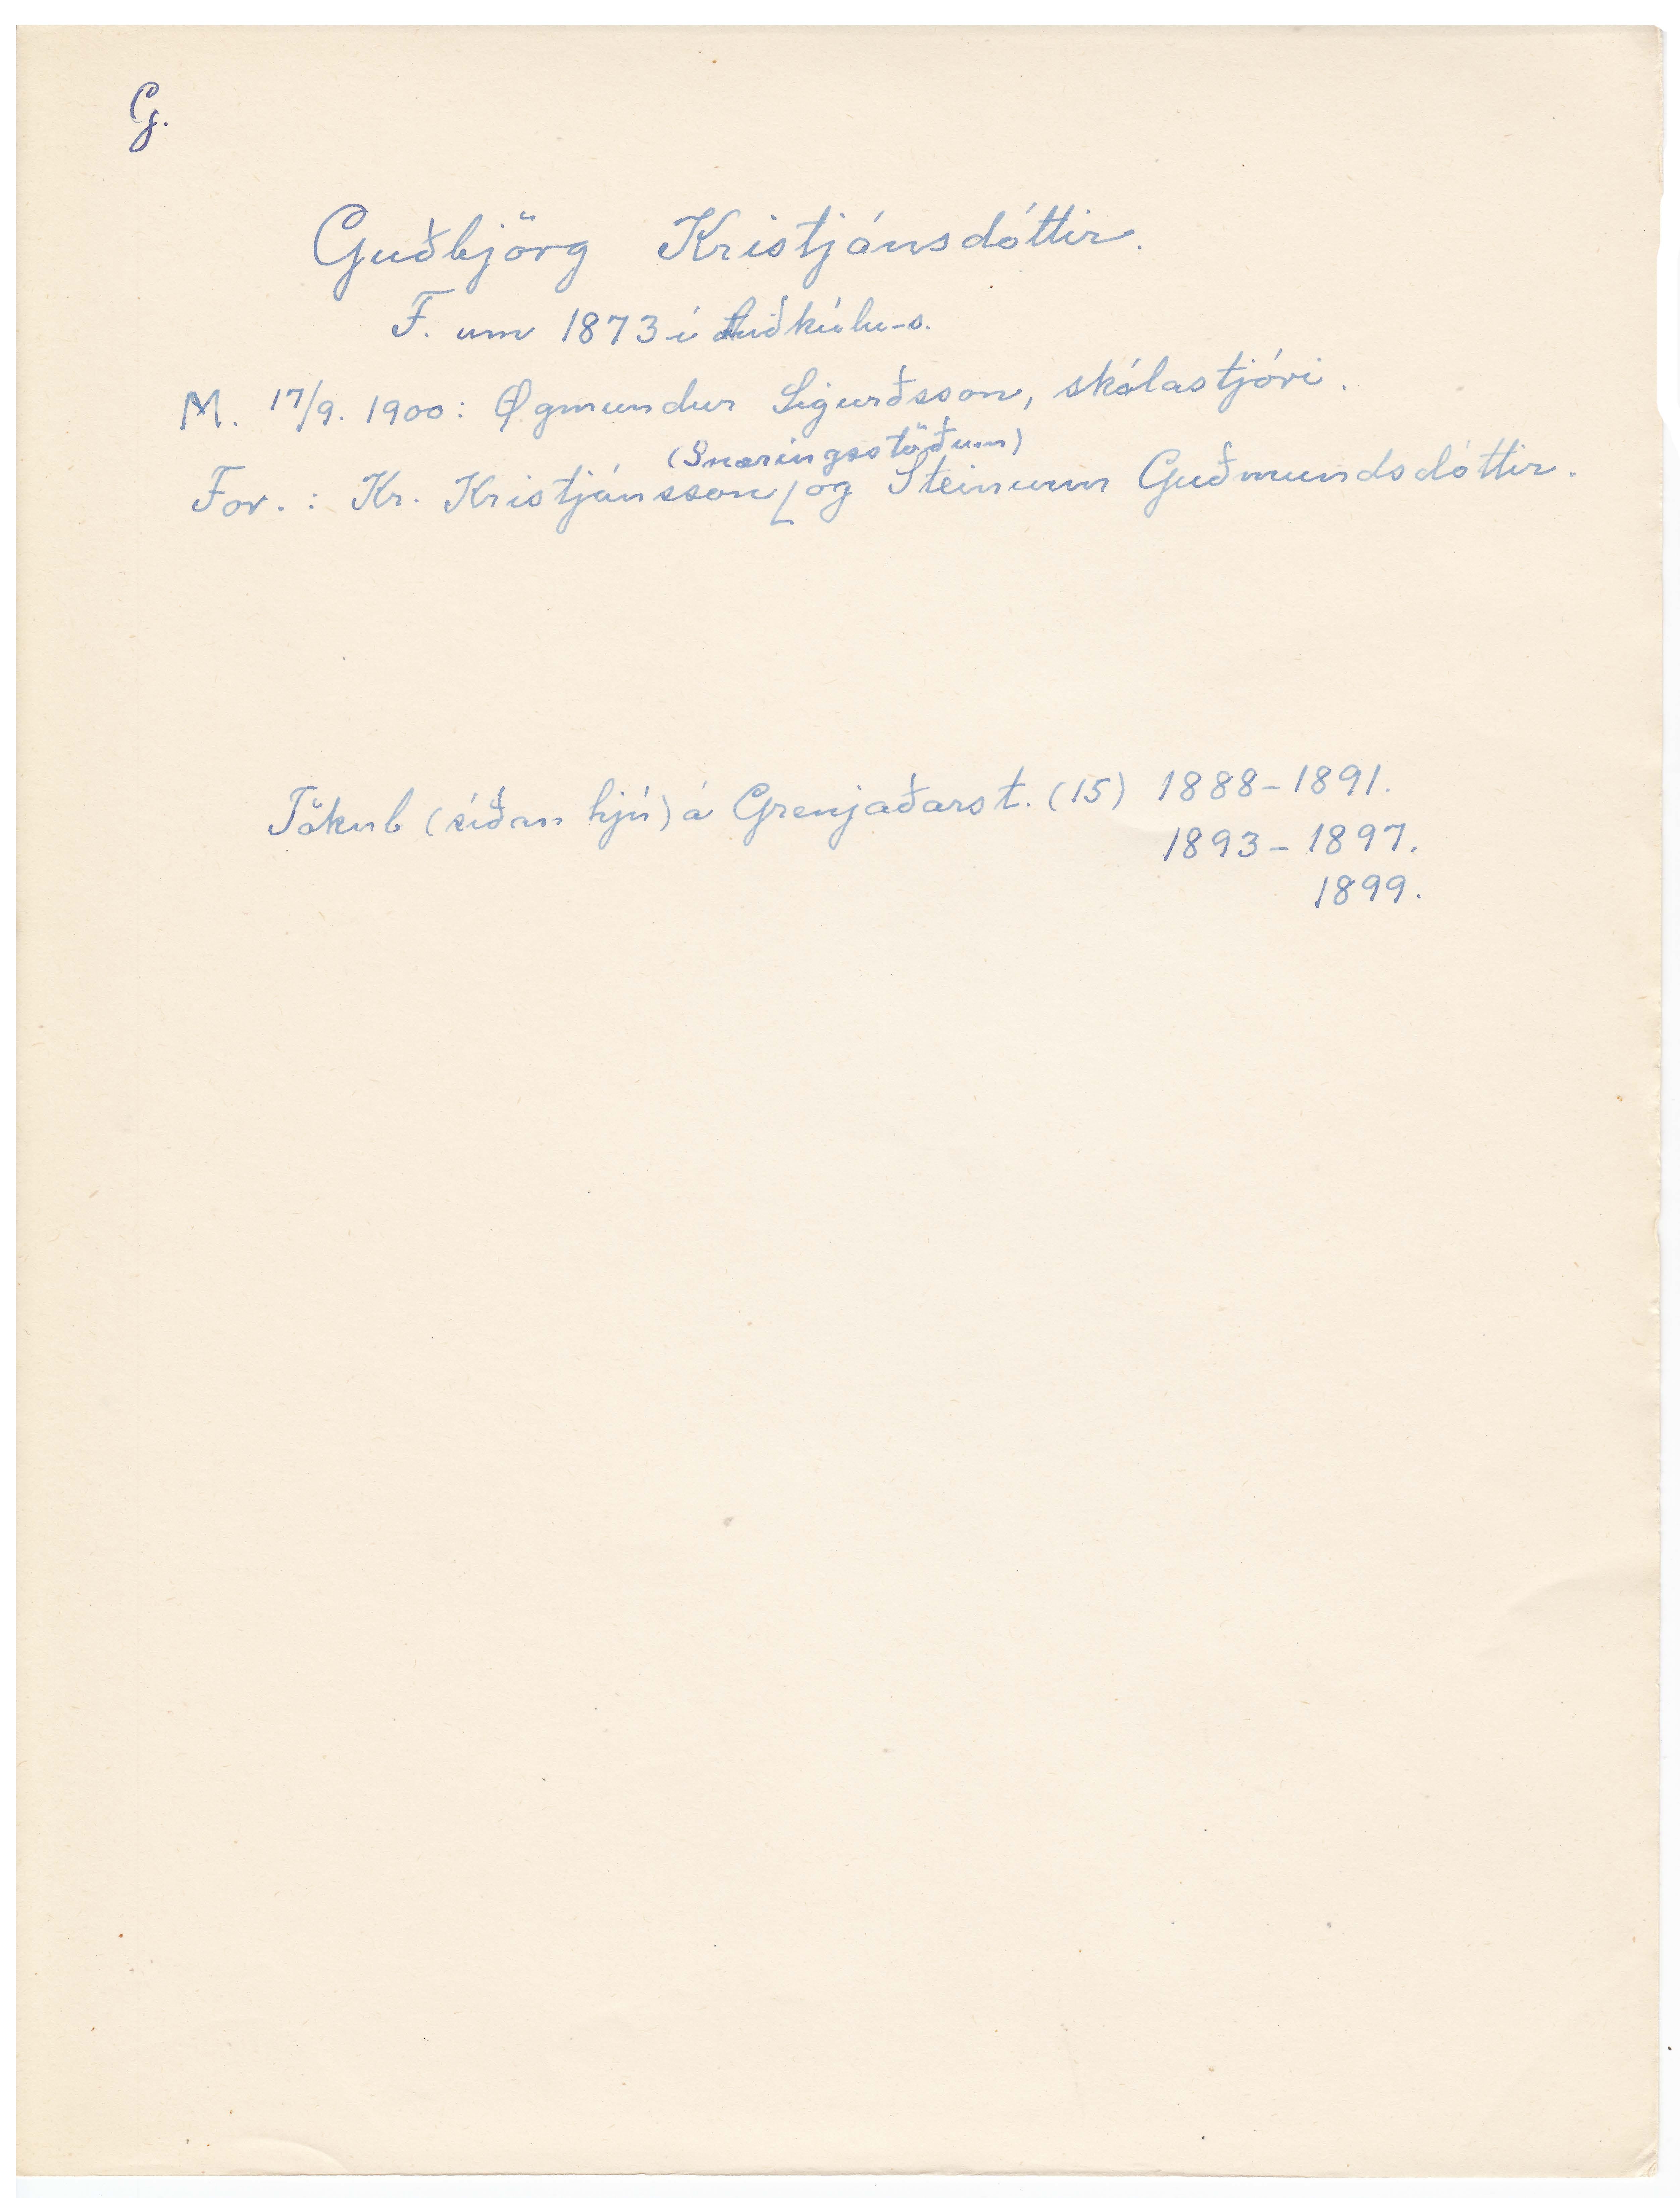 G.
Guðbjörg Kristjánsdóttir.
F. um 1873 í Auðkúlu-s.
M. 17/9. 1900: Øgmundur Sigurðsson, skólastjóri.
(Snæringsstöðum)
For. : Kr. Kristjánsson og Steinunn Guðmundsdóttir.
Tökub (síðan hjú) á Grenjaðarst. (15) 1888-1891.
1893-1897.
1899.